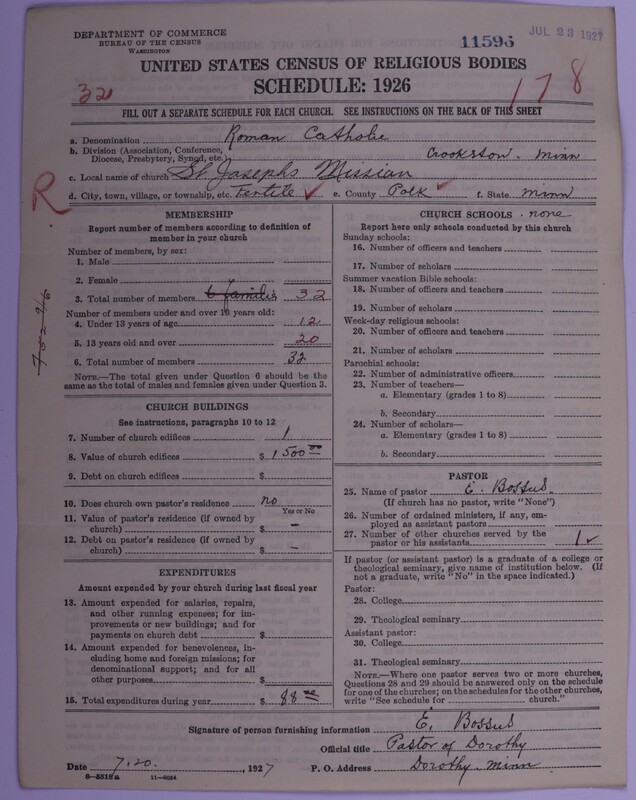 DEPARTMENT OF COMMERCE
BUREAU OF THE CENSUS
WASHINGTON
11596
JUL 23 1927
UNITED STATES CENSUS OF RELIGIOUS BODIES
SCHEDULE: 1926
32
178
FILL OUT A SEPARATE SCHEDULE FOR EACH CHURCH. SEE INSTRUCTIONS ON THE BACK OF THIS SHEET
a. Denomination Roman Catholic
b. Division (Association, Conference, Diocese, Presbytery, Synod, etc.) Crookston. Minn
c. Local name of church St. Josephs Mission
d. City, town, village, or township, etc. Fertile ✓ e. County Polk ✓ f. State Minn
R
MEMBERSHIP
Report number of members according to definition of
member in your church
Number of members, by sex:
1. Male
2. Female
3. Total number of members 6 families 32
Number of members under and over 13 years old:
4. Under 13 years of age 12
5. 13 years old and over 20
6. Total number of members 32
NOTE.—The total given under Question 6 should be the
same as the total of males and females given under Question 3.
CHURCH BUILDINGS
See instructions, paragraphs 10 to 12
7. Number of church edifices 1
8. Value of church edifices $ 1500 00
9. Debt on church edifices $
10. Does church own pastor's residence no
Yes or No
11. Value of pastor's residence (if owned by
church) $ –
12. Debt on pastor's residence (if owned by
church) $ –
EXPENDITURES
Amount expended by your church during last fiscal year
13. Amount expended for salaries, repairs,
and other running expenses; for im-
provements or new buildings; and for
payments on church debt $
14. Amount expended for benevolences, in-
cluding home and foreign missions; for
denominational support; and for all
other purposes $
15. Total expenditures during year $ 88 00
CHURCH SCHOOLS . none
Report here only schools conducted by this church
Sunday schools:
16. Number of officers and teachers
17. Number of scholars
Summer vacation Bible schools:
18. Number of officers and teachers
19. Number of scholars
Week-day religious schools:
20. Number of officers and teachers
21. Number of scholars
Parochial schools:
22. Number of administrative officers
23. Number of teachers—
a. Elementary (grades 1 to 8)
b. Secondary
24. Number of scholars—
a. Elementary (grades 1 to 8)
b. Secondary
PASTOR
25. Name of pastor E. Bossus.
(If church has no pastor, write "None")
26. Number of ordained ministers, if any, em-
ployed as assistant pastors
27. Number of other churches served by the
pastor or his assistants 1 ✓
If pastor (or assistant pastor) is a graduate of a college or
theological seminary, give name of institution below. (If
not a graduate, write "No" in the space indicated.)
Pastor:
28. College
29. Theological seminary
Assistant pastor:
30. College
31. Theological seminary
NOTE.—Where one pastor serves two or more churches,
Questions 28 and 29 should be answered only on the schedule
for one of the churches; on the schedules for the other churches,
write "See schedule for church."
Signature of person furnishing information E. Bossus
Official title Pastor of Dorothy
Date 7.20. , 1927 P. O. Address Dorothy. Minn
8—5518a 11—9024